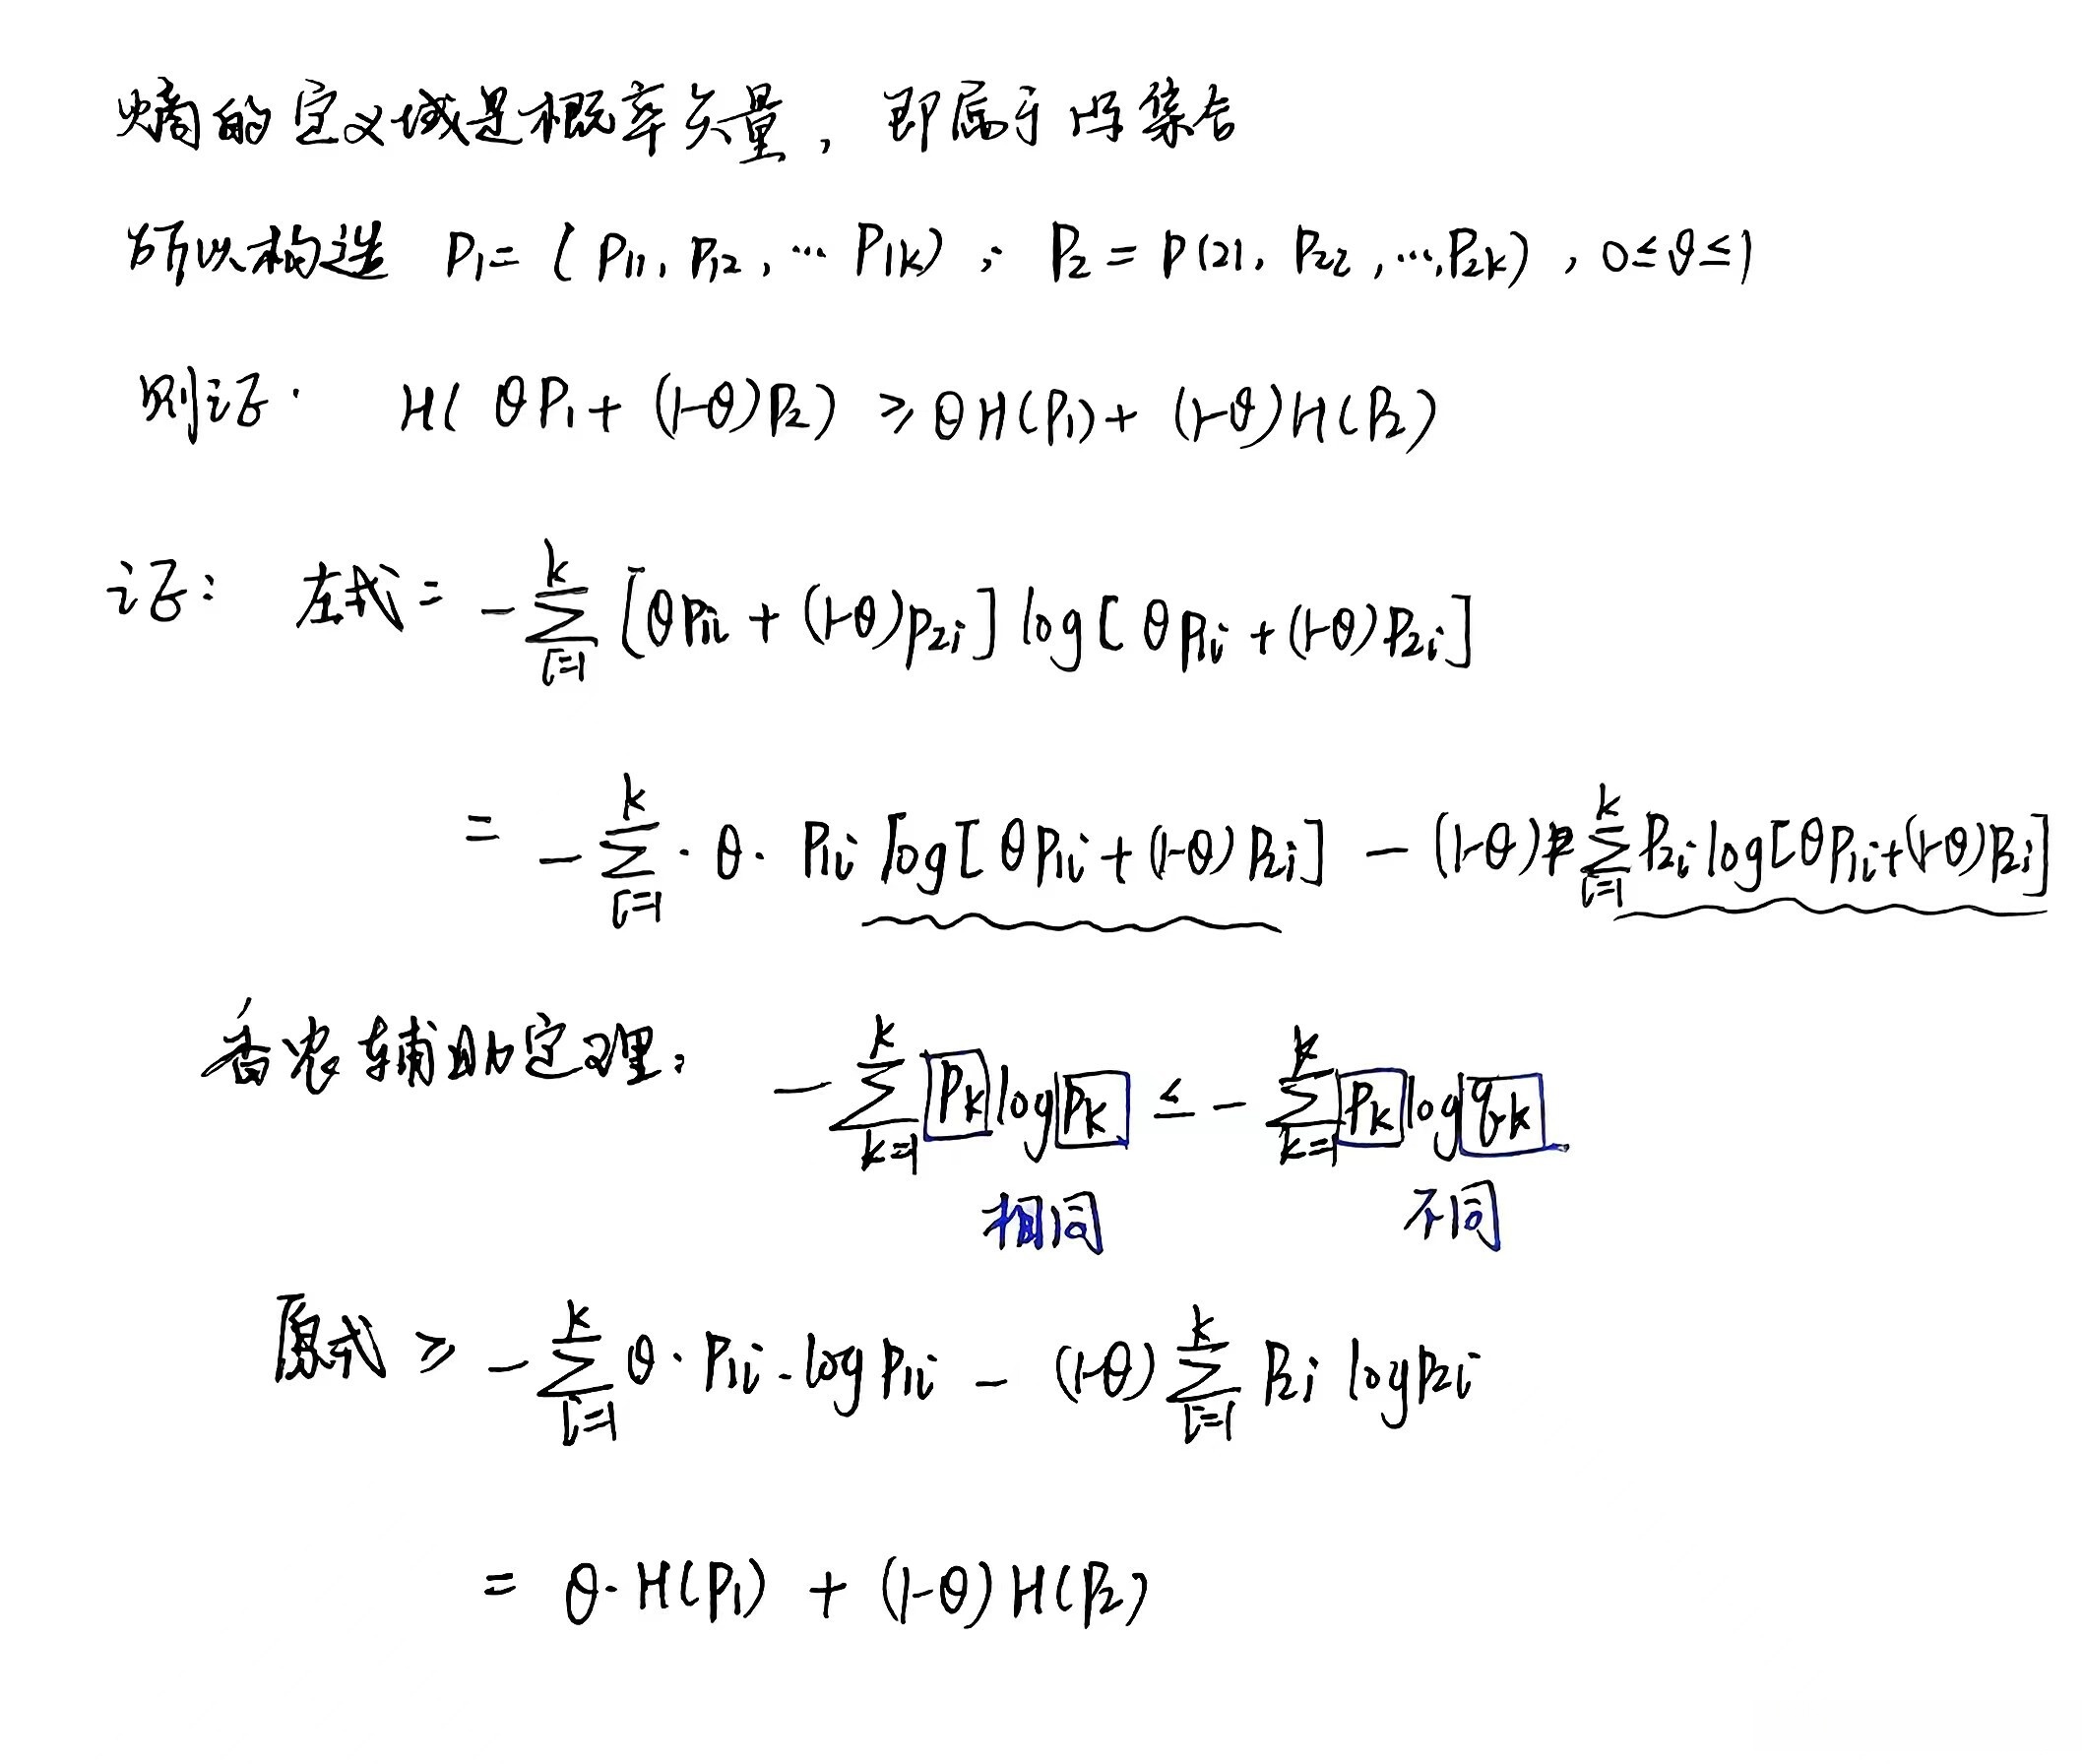 熵的定义域是概率矢量，即属于凸集合
所以构造 P₁=(P₁₁, P₁₂, ⋯ P₁ₖ)；P₂=P(21, P₂₂, ⋯, P₂ₖ)，0≤θ≤1
则证： H(θP₁+(1-θ)P₂) ≥ θH(P₁)+(1-θ)H(P₂)
证： 左式= -∑_{i=1}^{k} [θP₁ᵢ+(1-θ)P₂ᵢ] log[θP₁ᵢ+(1-θ)P₂ᵢ]
= -∑_{i=1}^{k}·θ·P₁ᵢ log[θP₁ᵢ+(1-θ)P₂ᵢ] - (1-θ)∑_{i=1}^{k} P₂ᵢ log[θP₁ᵢ+(1-θ)P₂ᵢ]
香农辅助定理： -∑_{k=1}^{k} Pₖ log Pₖ ≤ -∑_{k=1}^{k} Pₖ log qₖ
相同 不同
原式 ≥ -∑_{i=1}^{k} θ·P₁ᵢ·log P₁ᵢ - (1-θ)∑_{i=1}^{k} P₂ᵢ log P₂ᵢ
= θ·H(P₁) + (1-θ)H(P₂)